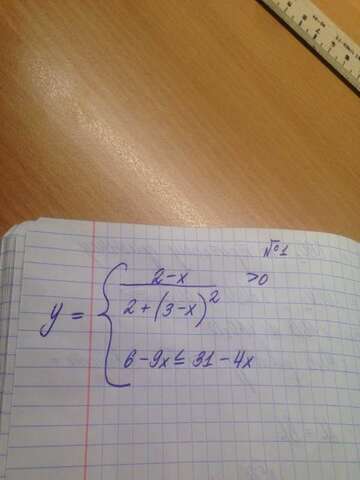 №1
y = { (2-x)/(2+(3-x)²) >0
6-9x ≤ 31-4x